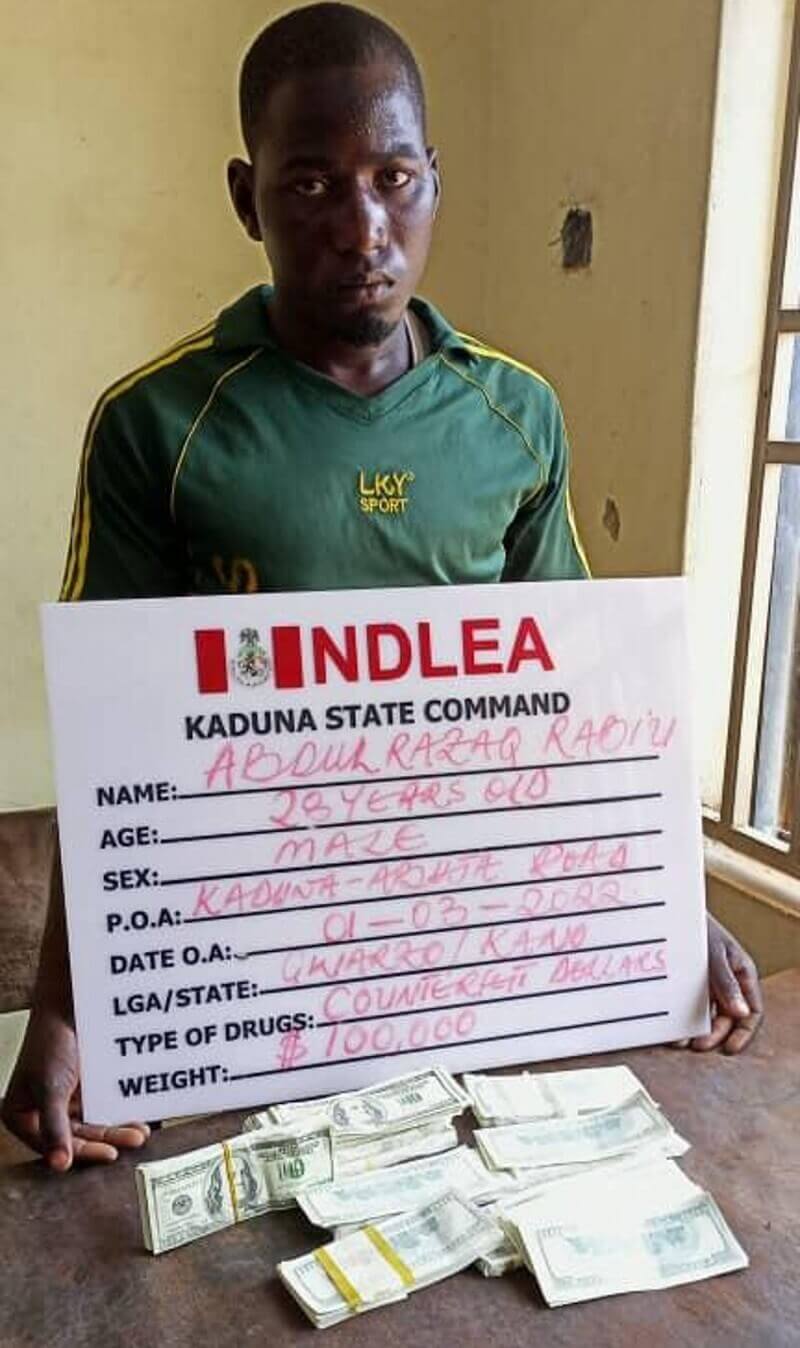 LKY
SPORT
NDLEA
KADUNA STATE COMMAND
NAME: ABDULRAZAQ RABI'U
AGE: 28 YEARS OLD
SEX: MALE
P.O.A: KADUNA-ABUJA ROAD
DATE O.A: 01-03-2022
LGA/STATE: GWARZO/KANO
TYPE OF DRUGS: COUNTERFEIT DOLLARS
WEIGHT: $100,000
100